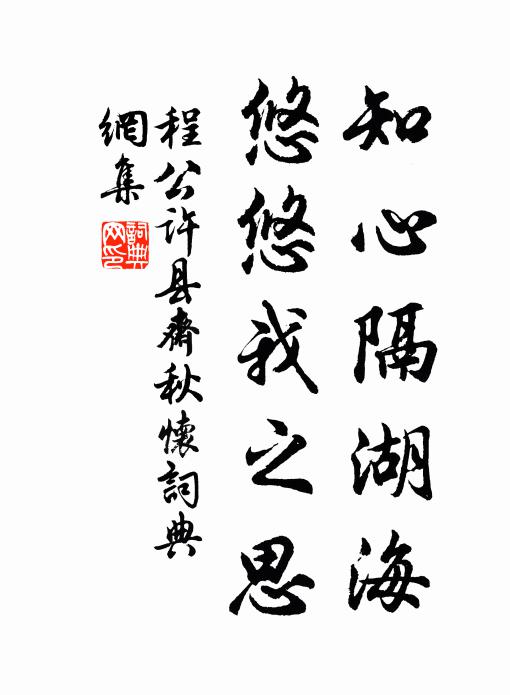 知心隔湖海
悠悠我之思
程公许县齋秋懷詞典
網集
詞典
网印